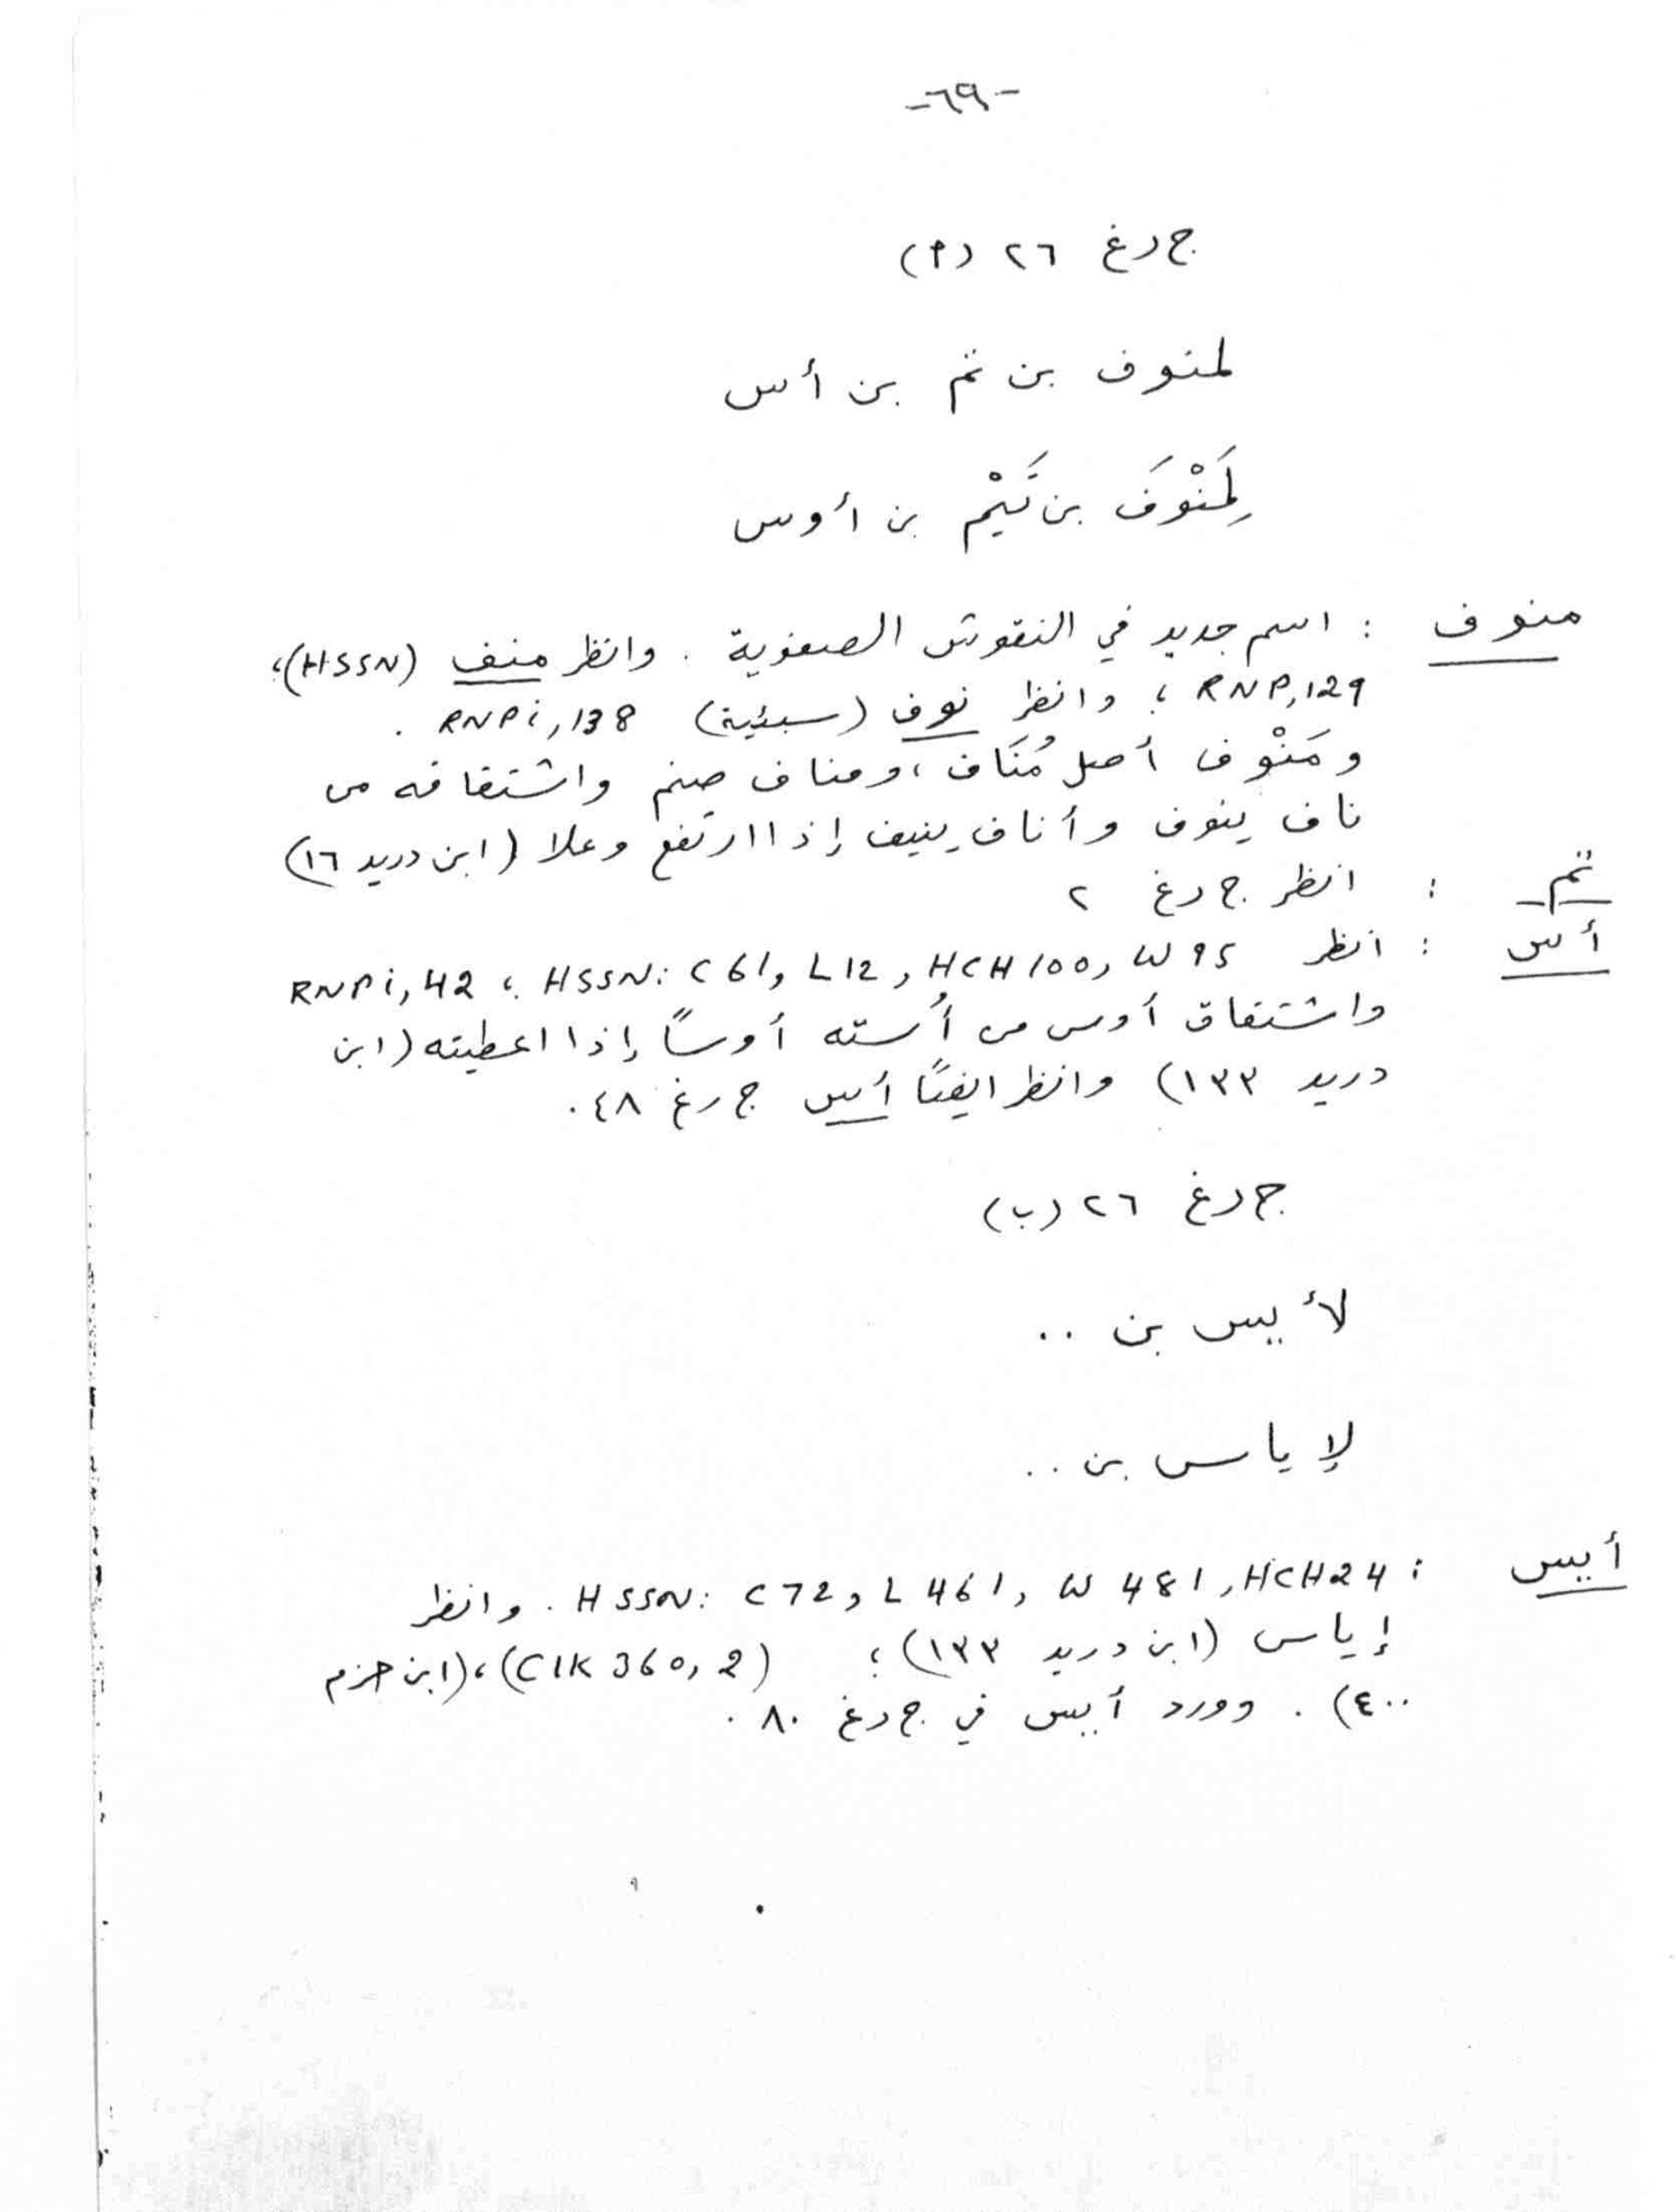 -٦٩-
ج رغ ٢٦ (أ)
لمنوف بن تم بن أس
لِمَنْوَف بن تَيْم بن أوس
منوف : اسم جديد في النقوش الصفوية . وانظر منف (HSSN)،
RNP, 129 ؛ وانظر نوف (سبئية) RNPi, 138 .
ومَنْوف أصل مُنَاف ، ومناف صنم واشتقاقه من
ناف ينوف وأناف ينيف إذا ارتفع وعلا (ابن دريد ١٦)
تم : انظر ج رغ ٢
أس : انظر RNPi, 42 ؛ HSSN: C 61, L 12, HCH 100, W 95
واشتقاق أوس من أُسته أوساً إذا اعطيته (ابن
دريد ١٣٣) وانظر ايضًا أس ج رغ ٤٨ .
ج رغ ٢٦ (ب)
لأيس بن ..
لإياس بن ..
أيس : HSSN: C 72, L 461, W 481, HCH 24 . وانظر
إياس (ابن دريد ١٣٣) ؛ (CIK 360, 2) ، (ابن حزم
٤٠٠) . وورد أيس في ج رغ ٨٠ .